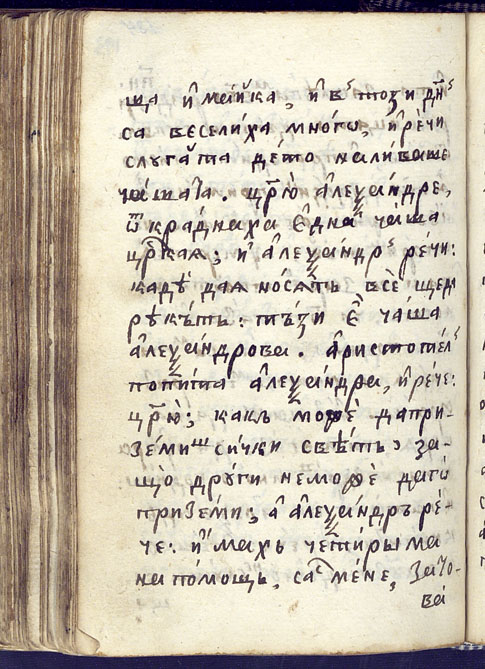 ща и҆ ма́йка, и҆ въ този дн҃ь
са весели́ха мно́гѡ, и҆ ре́чи
слꙋга́та де́то нали́ваше
ча́шаꙗ. цр҃ю а҆леѯа́ндре,
ѿкра́днаха є҆дна̀ ча́ша
цр҇каѧ; и҆ а҆леѯа́ндръ ре́чи:
кадѐ даѧ но́сѧтъ всѐ щеи
рѣ́кътъ: тъ́зи є҆̀ ча́ша
а҆леѯа́ндрова. а҆ристоте́лъ
попи́та а҆леѯа́ндра, и҆ ре́че:
цр҃ю̀; какъ мо́жѐ дапри-
зе́мишъ си́чки свѣ́тъ, за-
що̀ дрꙋ́ги немо́жѐ даго̀
призе́ми; а҆ а҆леѯа́ндръ ре́-
че: и҆́махъ чети́ры ма
на по́мощь, съсъ ме́не, Зато-
ва̀